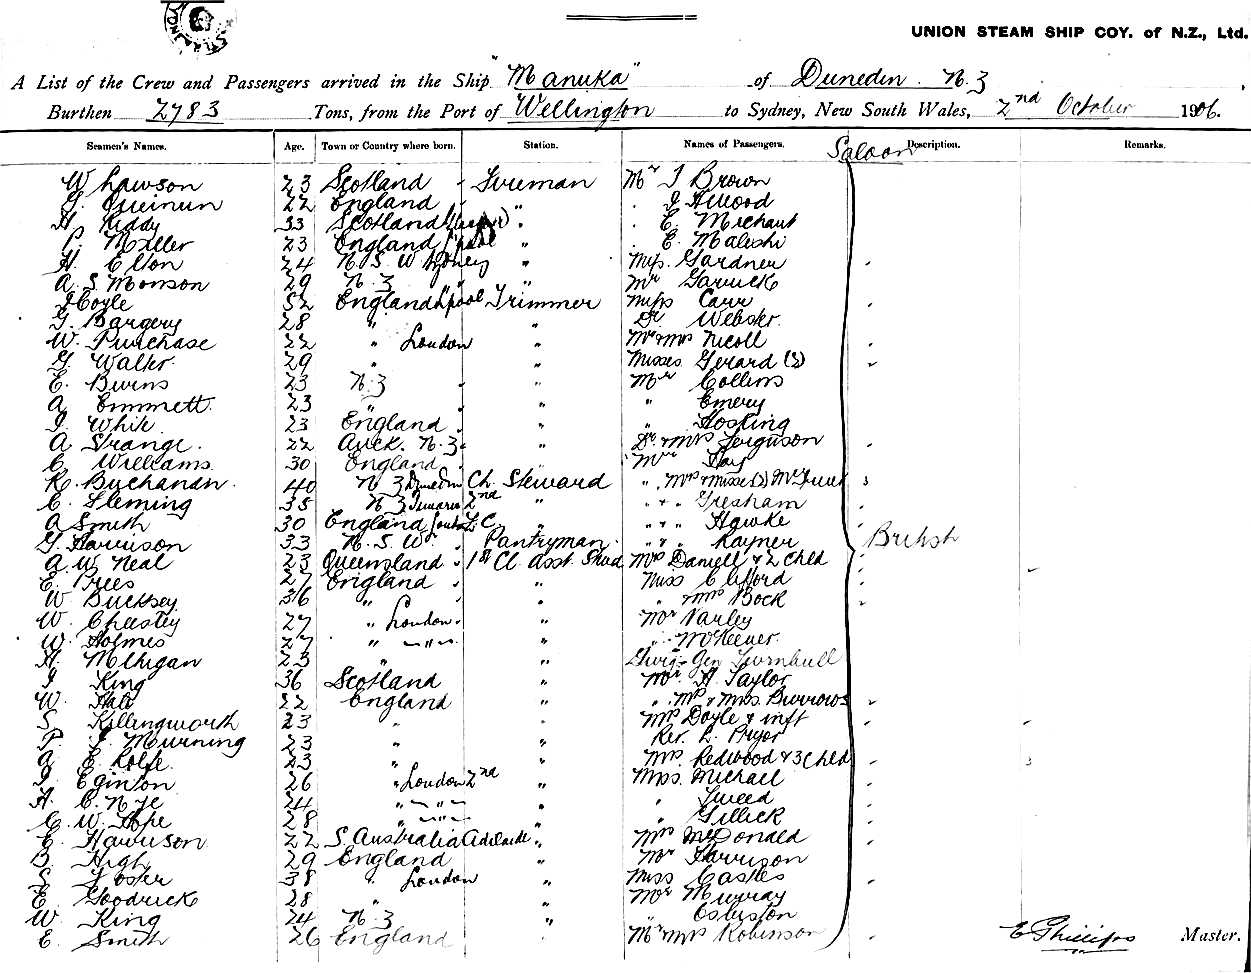 UNION STEAM SHIP COY. of N.Z., Ltd.
A List of the Crew and Passengers arrived in the Ship "Manuka" of Dunedin. N.Z
Burthen 2783 Tons, from the Port of Wellington to Sydney, New South Wales, 2nd October 1906.
Seamen's Names. Age. Town or Country where born. Station. Names of Passengers. Saloon Description. Remarks.
W Lawson 23 Scotland Fireman Mr J Brown
22 England " J Atwood
H Kiddy 33 Scotland " E. Merchant
P. Miller 23 England L'pool " E. Maleski
H. Elton 24 N. S. W Sydney " Miss. Gardner
A. S. Monson 29 N. Z " Mr Garrick
J Coyle 52 England L'pool Trimmer Miss Carr
G. Bargery 28 " " Dr Webster
W. Purchase 22 " London " Mr & Mrs Nicoll
G. Walker 29 " " Misses Gerard (2)
E. Burns 23 N. Z " Mr Collins
A Emmett 23 " " " Emery
J. White 23 England " " Hosking
A Strange. 22 Auck. N. Z. " Dr & Mrs Ferguson
C Williams 30 England " Mr Hay
R. Buchanan. 40 N Z Dunedin Ch. Steward " Mrs & Misses (2)
C. Fleming 35 N Z 2nd " " & " Gresham
A Smith 30 England " " & " Hawke
G. Harrison 33 N. S. W. Pantryman " & " Rayner British
A. W. Neal 23 Queensland 1st Cl asst Stwd Mrs Daniell & 2 Chld
E. Trees 27 England " Miss Clifford
W Bucksey 36 " " " Mrs Bock
W. Cheesley 27 " London " Mr Varley
W. Holmes 27 " " " " McKeever
H. Melhigan 23 " " Gen Turnbull
J King 36 Scotland " Mr H Taylor
W. Hale 22 England " " Mr & Mrs. Burrows
S. Killingworth 23 " " Mrs Doyle & inft
P. J. Murning 23 " " Rev. L. Pryor
A E. Rolfe 23 " " Mrs. Redwood & 3 Chld
J. Eginton 26 " London 2nd " Miss. Michael
H. C. Nye 24 " " " " Tweed
C. W. Hope 28 " " " " Gillick
E. Harrison 22 S. Australia Adelaide " Mrs McDonald
B. High 29 England " Mr Harrison
S. Foster 38 " London " Miss Castles
E. Goodrick 28 " " Mr Murray
W. King 24 N. Z " "
E. Smith 26 England Mr & Mrs Robinson E Phillips Master.